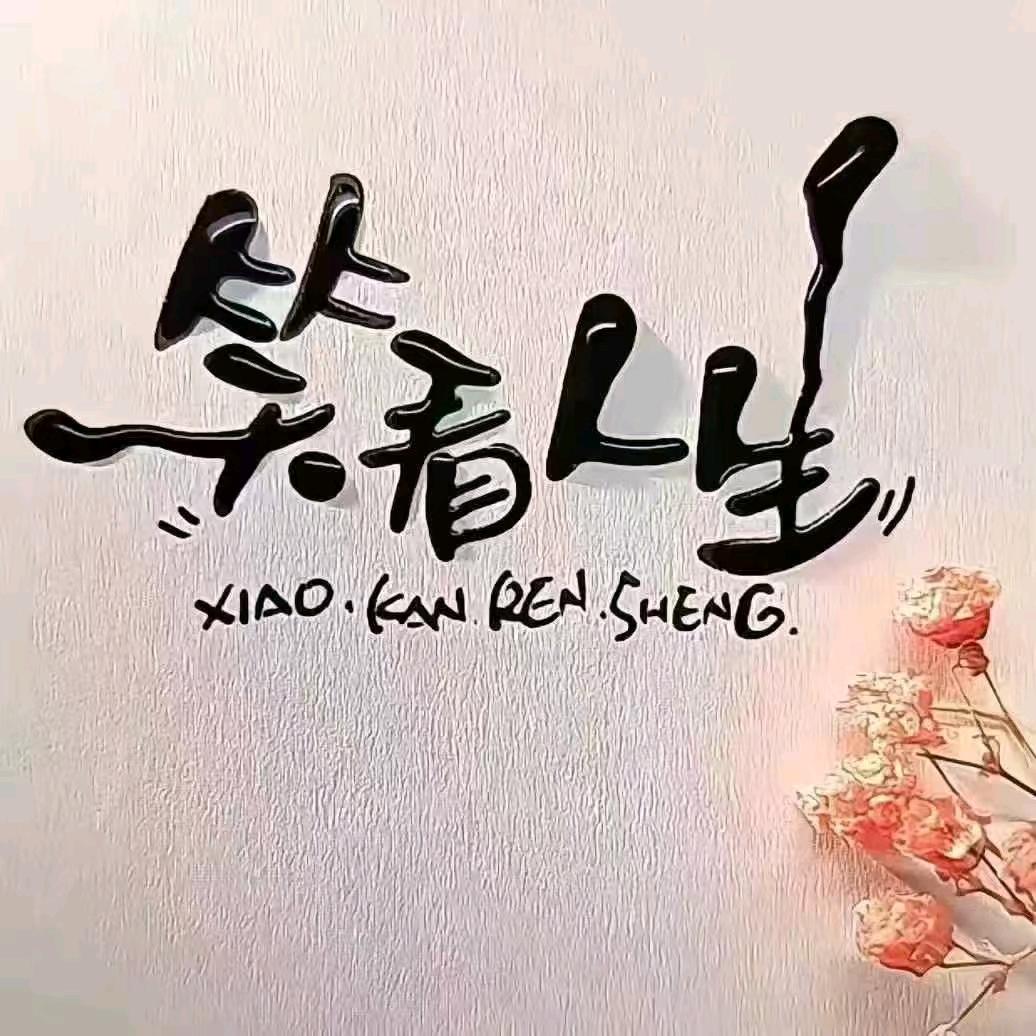 笑看人生
XIAO.KAN.REN.SHENG.